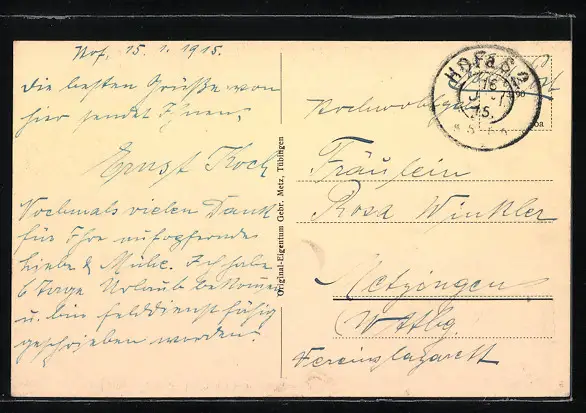 Hof, 15. 1. 1915.
Die besten Grüße von
hier sendet Ihnen
Ernst Koch
Nochmals vielen Dank
für Ihre aufopfernde
Liebe & Mühe. Ich habe
6 Tage Urlaub bekommen
u. bin felddienstfähig
geschrieben worden.
Original-Eigentum Gebr. Metz, Tübingen
HOF a. S. 2
15.
Fräulein
Rosa Winkler
Metzingen
(Wttbg.
Vereinslazarett